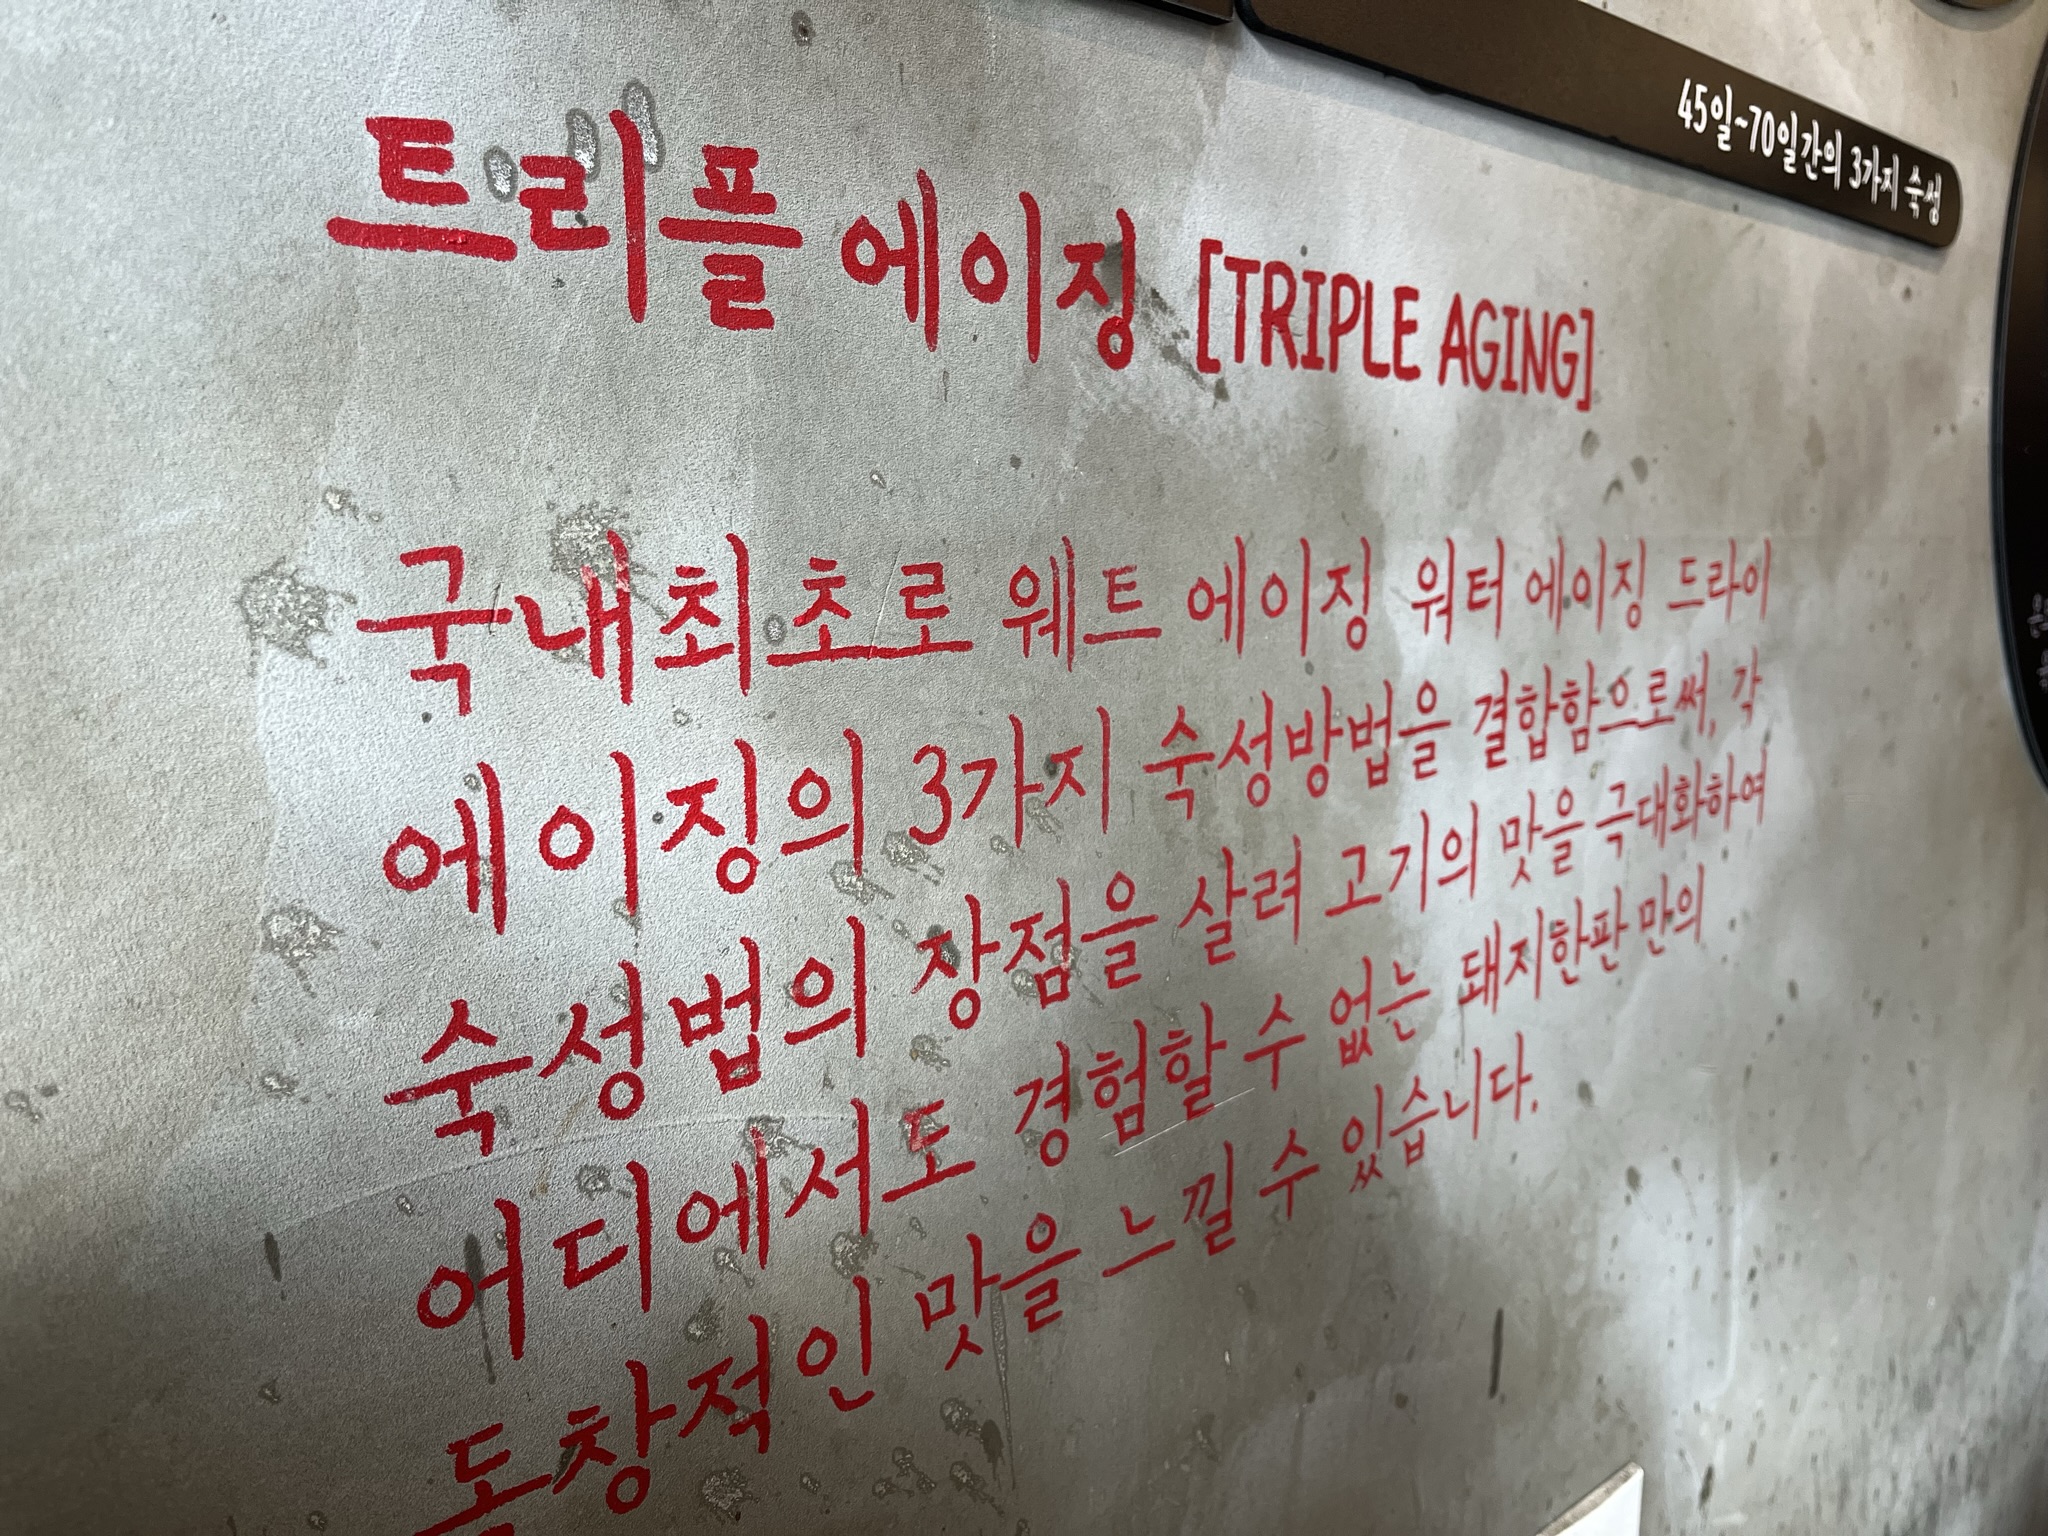 45일~70일간의 3가지 숙성
트리플 에이징 [TRIPLE AGING]
국내최초로 웨트 에이징 워터 에이징 드라이
에이징의 3가지 숙성방법을 결합함으로써, 각
숙성법의 장점을 살려 고기의 맛을 극대화하여
어디에서도 경험할 수 없는 돼지한판 만의
독창적인 맛을 느낄 수 있습니다.